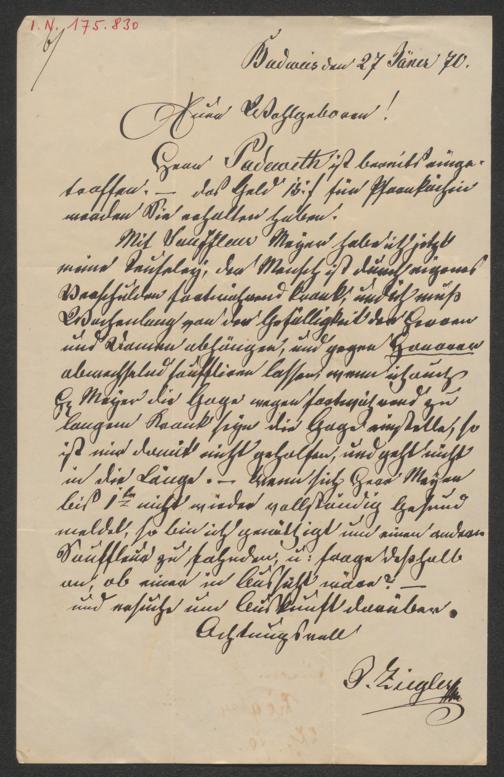 I. N. 175.830
Budweis den 27 Jäner 70.
Euer Wohlgeboren!
Herr Padewith ist bereits einge-
troffen. — das Geld 15 f für Pfarrköchin
werden Sie erhalten haben.
Mit Souffleur Meyer habe ich jetzt
meine Teufeley; der Mensch ist durch eigenes
Verschulden fortwährend krank, und ich muß
Wochenlang von der Gefälligkeit der Herren
und Damen abhängen, und gegen Honorar
abwechselnd soufflieren lassen, wenn ich auch
H. Meyer die Gage wegen fortwährend zu
langem Krank seyn die Gage einstelle, so
ist mir damit nicht geholfen, und geht nicht
in die Länge. — Wenn sich Herr Meyer
bis 1ten nicht wieder vollständig gesund
meldet, so bin ich genöthigt um einen andern
Souffleur zu fahnden, u: frage deßhalb
an, ob einer in Aussicht wäre? —
und ersuche um Auskunft darüber.
Achtungsvoll
Ziegler